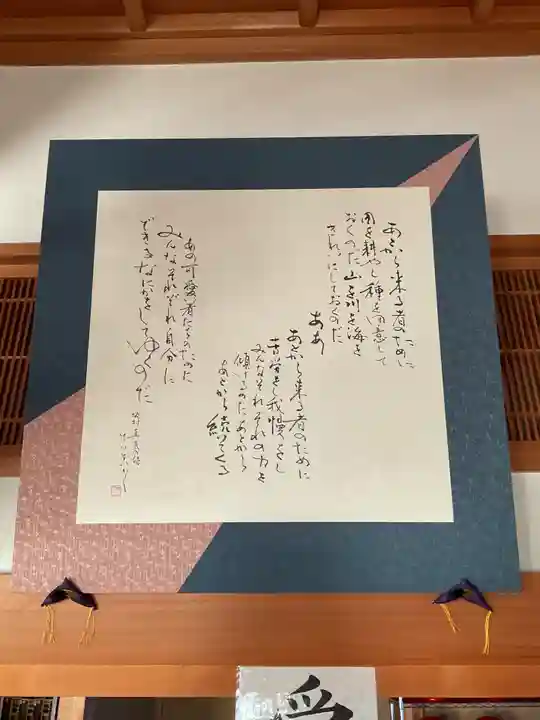 あとから来る者のために
田を耕やし種を用意して
おくのだ山を川を海を
きれいにしておくのだ
ああ
あとから来る者のために
苦労をし我慢をし
みんなそれぞれの力を
傾けるのだあとから
あとから続いてくる
あの可愛い者たちのために
みんなそれぞれ自分に
できるなにかをしてゆくのだ